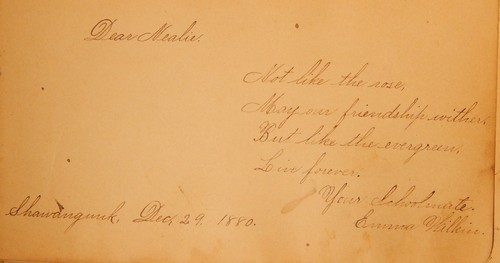 Dear Nealie.
Not like the rose,
May our friendship wither,
But like the evergreen,
Live forever.
Your Schoolmate.
Emma Walkin.
Shawangunk, Dec 29. 1880.